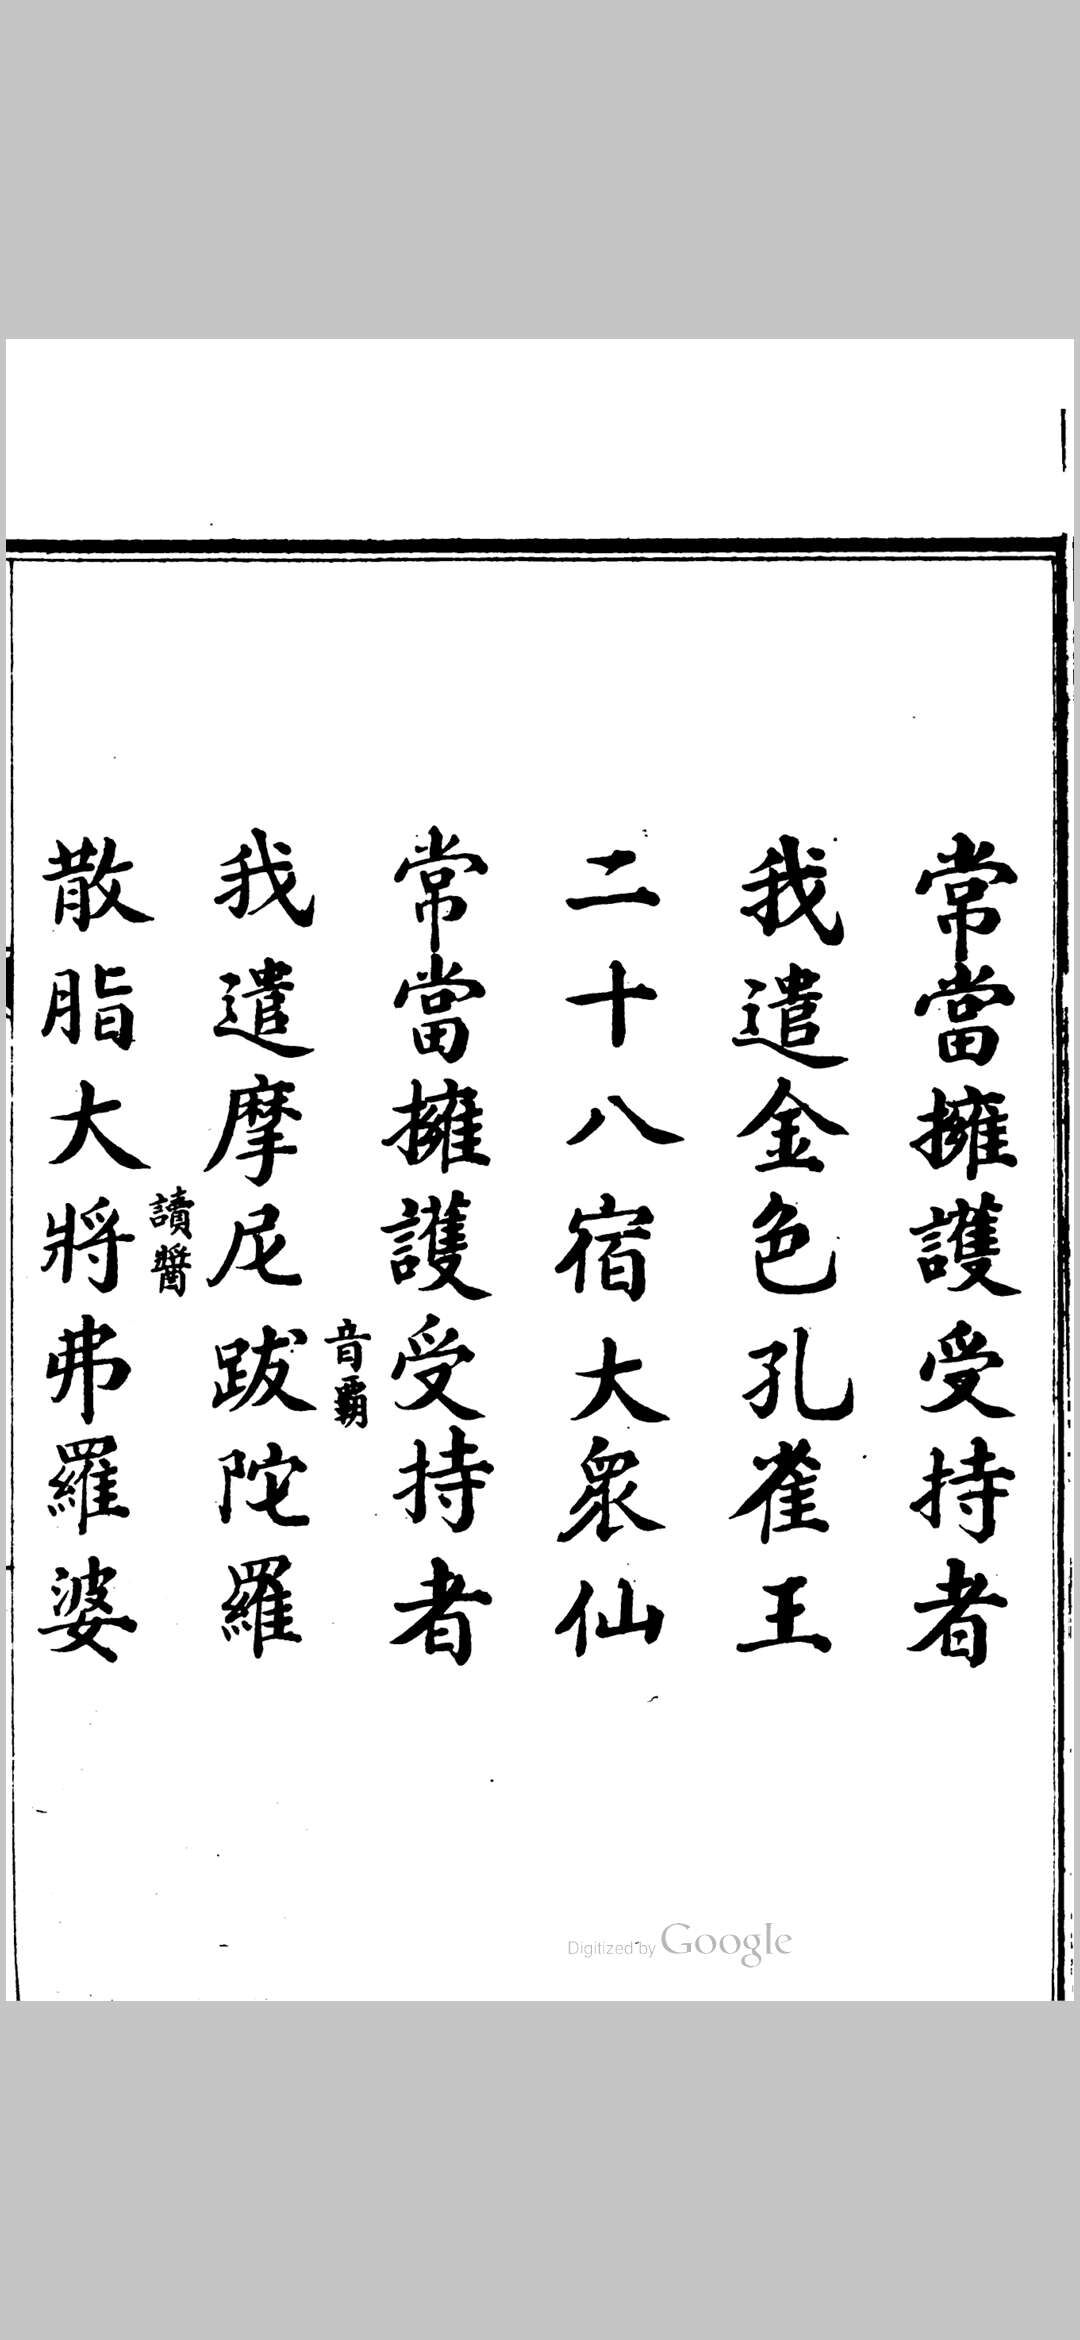 常當擁護受持者
我遣金色孔雀王
二十八宿大衆仙
常當擁護受持者
音霸
我遣摩尼跋陀羅
讀醬
散脂大將弗羅婆
Digitized by Google